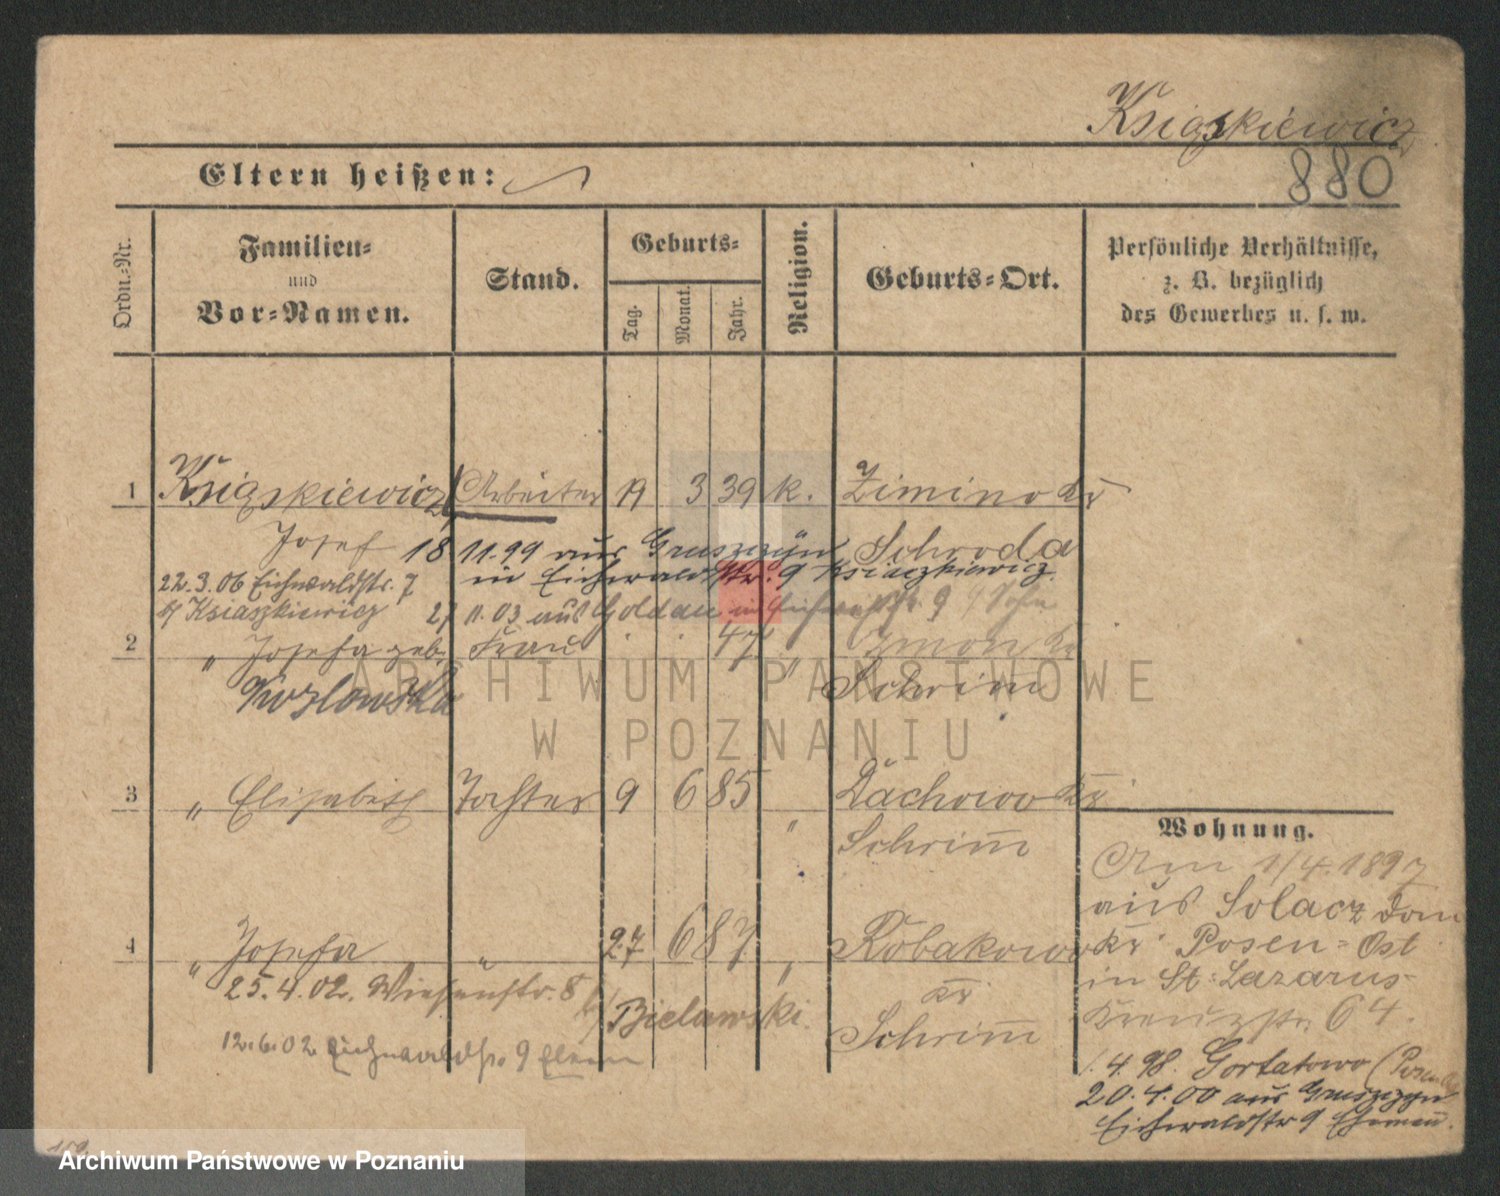 Książkiewicz
880
Eltern heißen:
Ordn.-Nr.
Familien-
und
Vor-Namen.
Stand.
Geburts-
Tag.
Monat.
Jahr.
Religion.
Geburts-Ort.
Persönliche Verhältnisse,
z. B. bezüglich
des Gewerbes u. s. w.
1 Książkiewicz Arbeiter 19 3 39 k. Zimino Kr
Josef Schroda
18 11.99 aus Gruszczyn
in Eichwaldstr. 9 Ksiaczkiewicz
22.3.06 Eichwaldstr. 7
b/ Ksiaszkiewicz 27 11.03 aus Goldau in 9
2 " Josefa geb. Frau 47 " Kr
Kozlowska Schrim
3 " Elisabeth Tochter 9 6 85 " Dachowo Kr
Schrim̄
4 " Josefa " 27 6 87 " Robakowo
Kr
Schrim̄
25.4.02. Wiesenstr. 8 b/ Bielawski.
12.6.02 Eichwaldstr. 9 Eltern
Wohnung.
Am 1/4.1897
aus Solacz Dom
Kr Posen-Ost
in St. Lazarus-
Kreuzstr. 64.
1.4.98. Gortatowo (Posen Ost
20.4.00 aus Gruszczyn
Eichwaldstr 9 Ehemañ.
ARCHIWUM PAŃSTWOWE
W POZNANIU
Archiwum Państwowe w Poznaniu